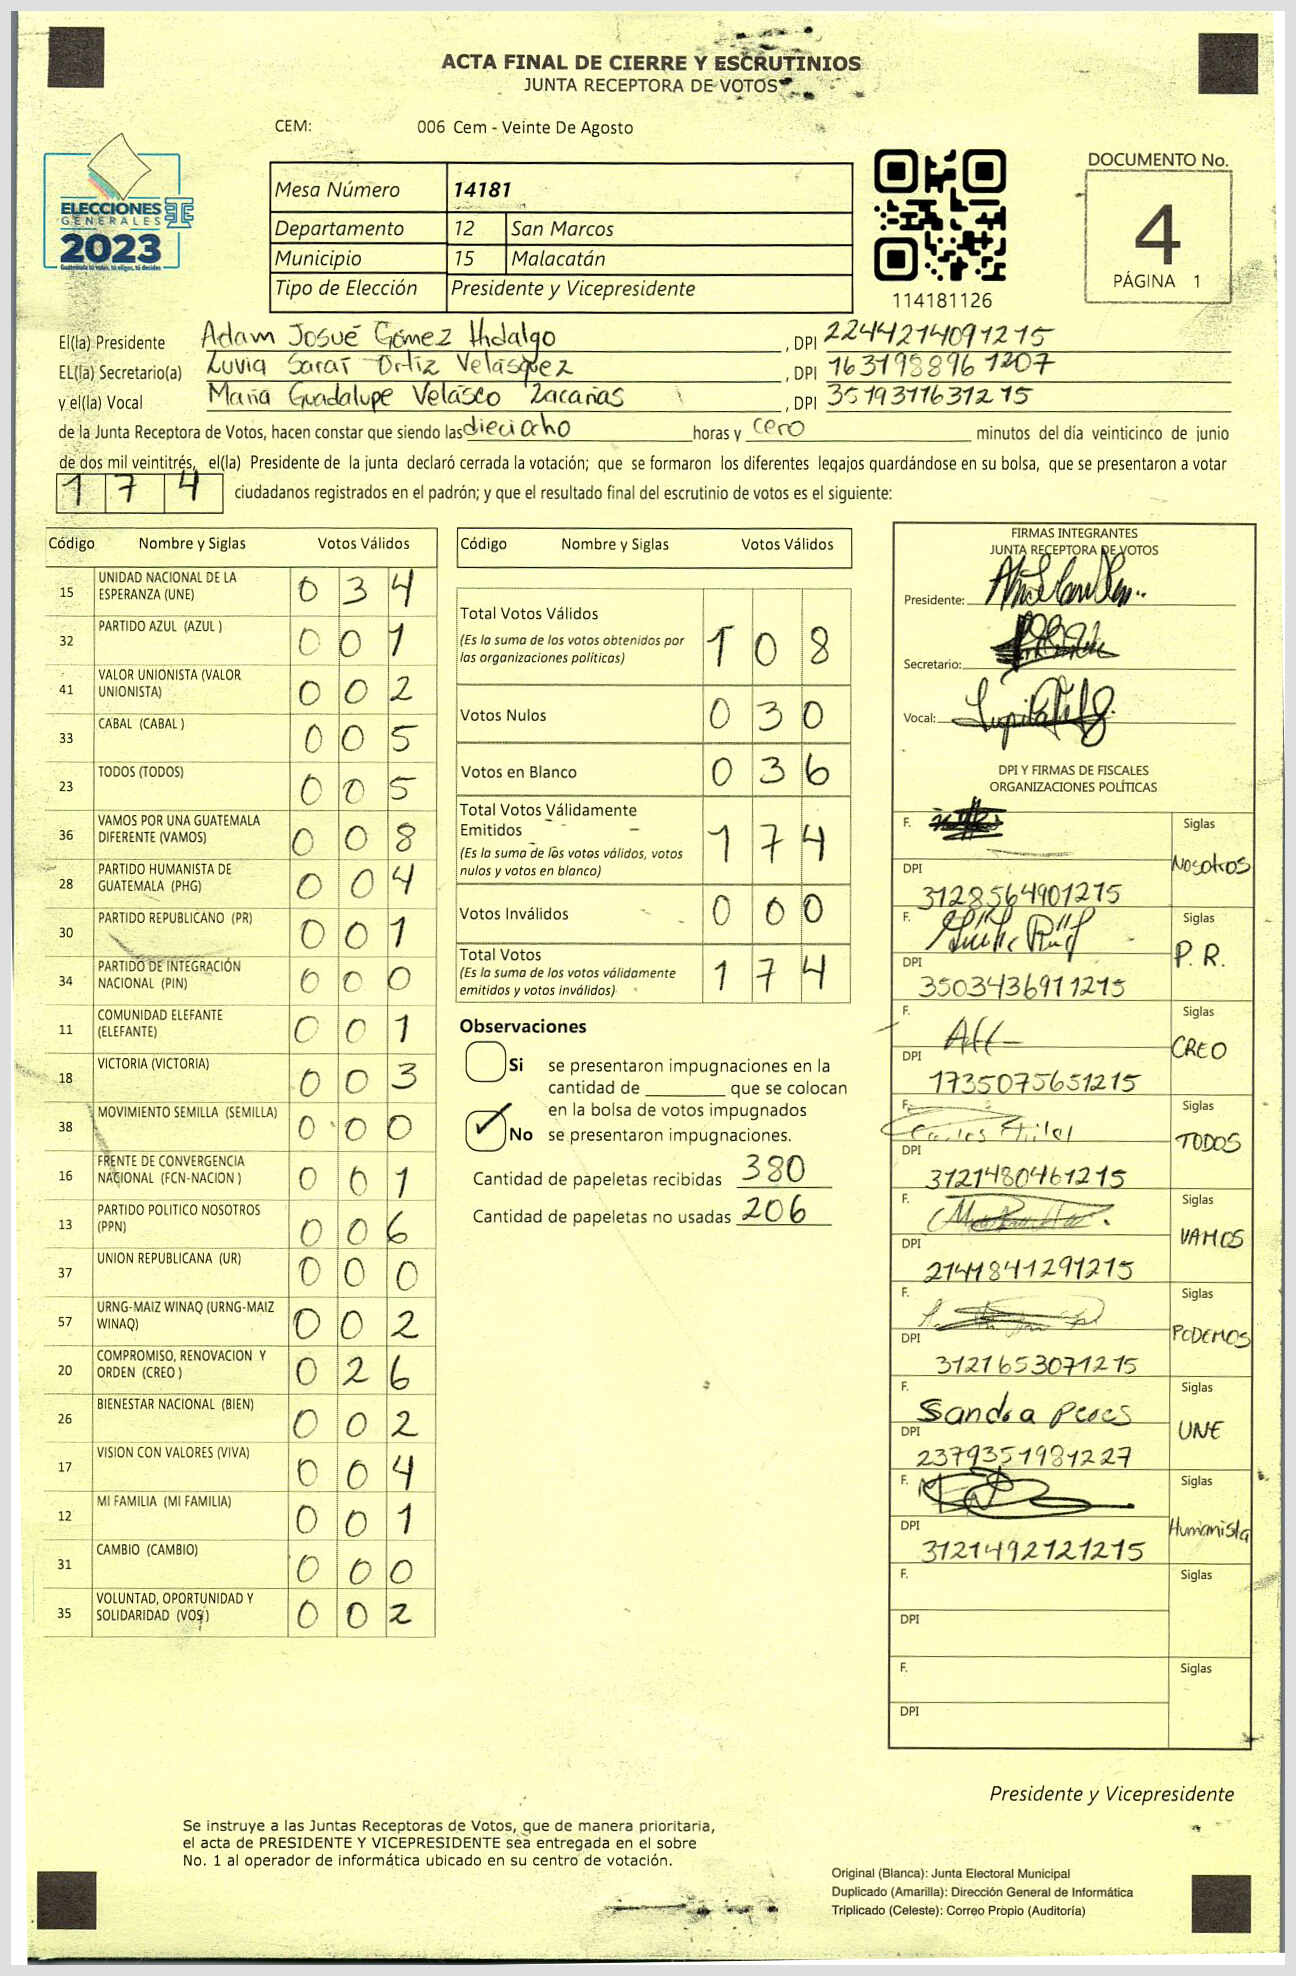 ACTA FINAL DE CIERRE Y ESCRUTINIOS
JUNTA RECEPTORA DE VOTOS
CEM: 006 Cem - Veinte De Agosto
ELECCIONES
GENERALES
2023
Guatemala tú votas, tú eliges, tú decides
Mesa Número 14181
Departamento 12 San Marcos
Municipio 15 Malacatán
Tipo de Elección Presidente y Vicepresidente
114181126
DOCUMENTO No.
4
PÁGINA 1
El(la) Presidente Adam Josué Gómez Hidalgo , DPI 2244214091215
EL(la) Secretario(a) Luvia Saraí Ortiz Velásquez , DPI 1631988961207
y el(la) Vocal María Guadalupe Velásco Zacarías , DPI 3519311631215
de la Junta Receptora de Votos, hacen constar que siendo las dieciocho horas y cero minutos del día veinticinco de junio
de dos mil veintitrés, el(la) Presidente de la junta declaró cerrada la votación; que se formaron los diferentes legajos guardándose en su bolsa, que se presentaron a votar
174 ciudadanos registrados en el padrón; y que el resultado final del escrutinio de votos es el siguiente:
Código Nombre y Siglas Votos Válidos
15 UNIDAD NACIONAL DE LA ESPERANZA (UNE) 0 3 4
32 PARTIDO AZUL (AZUL ) 0 0 1
41 VALOR UNIONISTA (VALOR UNIONISTA) 0 0 2
33 CABAL (CABAL ) 0 0 5
23 TODOS (TODOS) 0 0 5
36 VAMOS POR UNA GUATEMALA DIFERENTE (VAMOS) 0 0 8
28 PARTIDO HUMANISTA DE GUATEMALA (PHG) 0 0 4
30 PARTIDO REPUBLICANO (PR) 0 0 1
34 PARTIDO DE INTEGRACIÓN NACIONAL (PIN) 0 0 0
11 COMUNIDAD ELEFANTE (ELEFANTE) 0 0 1
18 VICTORIA (VICTORIA) 0 0 3
38 MOVIMIENTO SEMILLA (SEMILLA) 0 0 0
16 FRENTE DE CONVERGENCIA NACIONAL (FCN-NACION ) 0 0 1
13 PARTIDO POLITICO NOSOTROS (PPN) 0 0 6
37 UNION REPUBLICANA (UR) 0 0 0
57 URNG-MAIZ WINAQ (URNG-MAIZ WINAQ) 0 0 2
20 COMPROMISO, RENOVACION Y ORDEN (CREO ) 0 2 6
26 BIENESTAR NACIONAL (BIEN) 0 0 2
17 VISION CON VALORES (VIVA) 0 0 4
12 MI FAMILIA (MI FAMILIA) 0 0 1
31 CAMBIO (CAMBIO) 0 0 0
35 VOLUNTAD, OPORTUNIDAD Y SOLIDARIDAD (VOS) 0 0 2
Código Nombre y Siglas Votos Válidos
Total Votos Válidos 1 0 8
(Es la suma de los votos obtenidos por
las organizaciones políticas)
Votos Nulos 0 3 0
Votos en Blanco 0 3 6
Total Votos Válidamente
Emitidos 1 7 4
(Es la suma de los votos válidos, votos
nulos y votos en blanco)
Votos Inválidos 0 0 0
Total Votos 1 7 4
(Es la suma de los votos válidamente
emitidos y votos inválidos)
Observaciones
Si se presentaron impugnaciones en la
cantidad de ________ que se colocan
en la bolsa de votos impugnados
No se presentaron impugnaciones.
Cantidad de papeletas recibidas 380
Cantidad de papeletas no usadas 206
FIRMAS INTEGRANTES
JUNTA RECEPTORA DE VOTOS
Presidente:
Secretario:
Vocal:
DPI Y FIRMAS DE FISCALES
ORGANIZACIONES POLÍTICAS
F. Siglas
DPI Nosotros
3128564901215
F. Siglas
DPI P. R.
3503436911215
F. Siglas
DPI CREO
1735075651215
F. Siglas
DPI TODOS
3121480461215
F. Siglas
DPI VAMOS
2141841291215
F. Siglas
DPI PODEMOS
3121653071215
F. Sandra Siglas
DPI UNE
2379351981227
F. Siglas
DPI Humanista
3121492121215
F. Siglas
DPI
F. Siglas
DPI
Presidente y Vicepresidente
Se instruye a las Juntas Receptoras de Votos, que de manera prioritaria,
el acta de PRESIDENTE Y VICEPRESIDENTE sea entregada en el sobre
No. 1 al operador de informática ubicado en su centro de votación.
Original (Blanca): Junta Electoral Municipal
Duplicado (Amarilla): Dirección General de Informática
Triplicado (Celeste): Correo Propio (Auditoría)